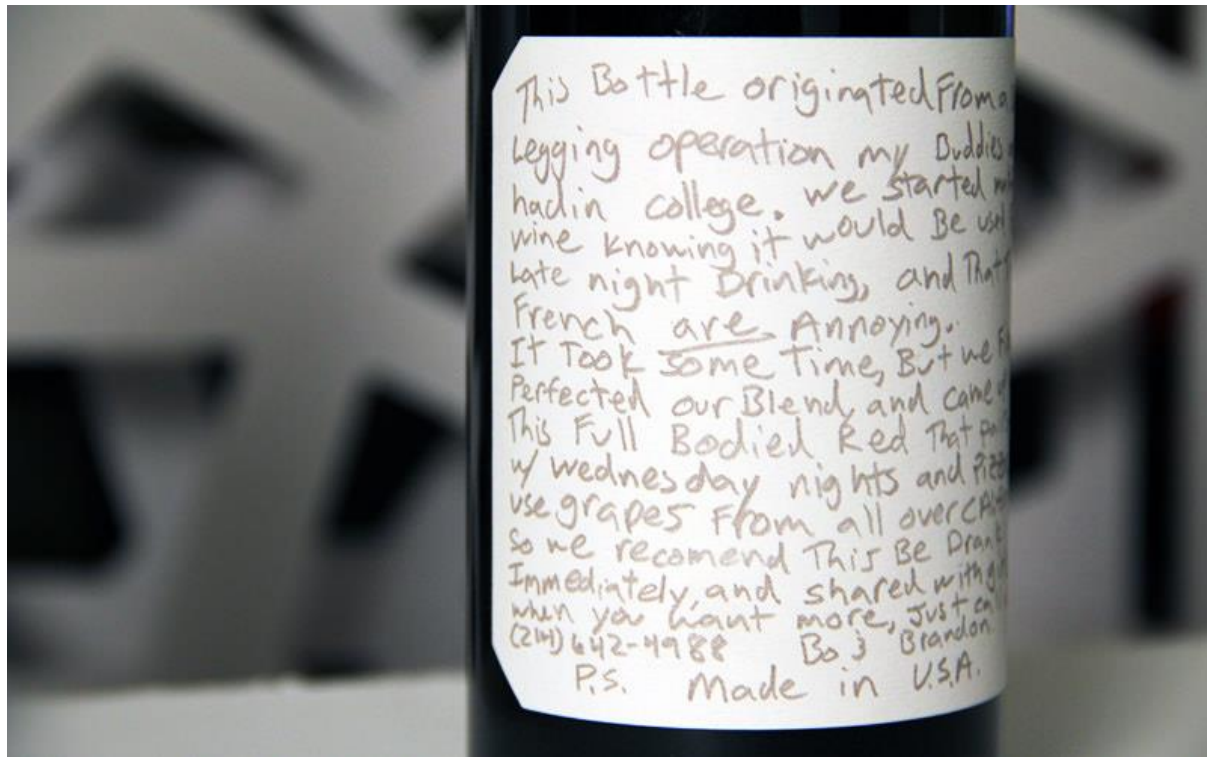 This Bottle originated From a
Legging operation my Buddies
had in college. We started
wine knowing it would Be used
Late night Drinking, and That
French are Annoying.
It Took some Time, But we
Perfected our Blend, and came
This Full Bodied Red That
w/ wednesday nights and
use grapes From all over
So we recomend This Be Drank
Immediately, and shared with
when you want more, Just
(214) 642-4988 Bo & Brandon
P.S. Made in U.S.A.